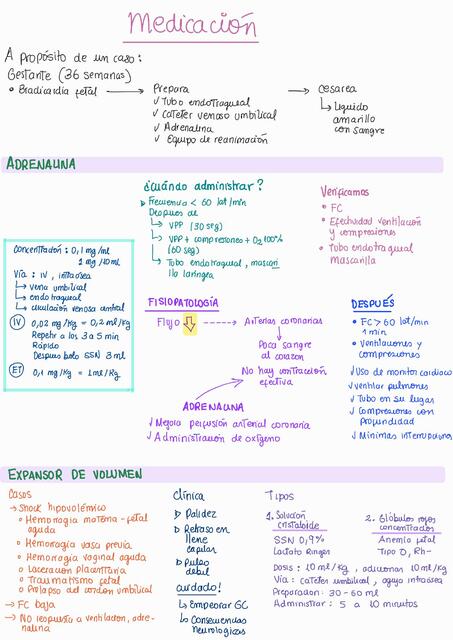 Medicación
A propósito de un caso:
Gestante (36 semanas)
• Bradicardia fetal → Prepara → Cesarea
✓ Tubo endotraqueal
✓ Cateter venoso umbilical
✓ Adrenalina
✓ Equipo de reanimación
↳ Liquido
amarillo
con sangre
ADRENALINA
¿Cuándo administrar?
Frecuencia < 60 lat/min
Despues de
↳ VPP (30 seg)
↳ VPP + compresiones + O2 100%
(60 seg)
↳ Tubo endotraqueal, mascari
lla laringea
Verificamos
• FC
• Efectividad ventilación
y compresiones
• Tubo endotraqueal
Mascarilla
Concentración: 0,1 mg/ml
1 mg/10ml
Vía: IV, intraósea
↳ vena umbilical
↳ endotraqueal
↳ circulación venosa central
IV 0,02 mg/Kg = 0,2 ml/Kg
Repetir a los 3 a 5 min
Rápido
Despues bolo SSN 3 ml
ET 0,1 mg/Kg = 1ml/Kg
FISIOPATOLOGÍA
Flujo ⇩ → Arterias coronarias
↓
Poca sangre
al corazon
↓
No hay contracción
efectiva
ADRENALINA
✓ Mejora perfusión arterial coronaria
✓ Administración de oxígeno
DESPUÉS
• FC > 60 lat/min
1 min
• Ventilaciones y
compresiones
✓ Uso de monitor cardíaco
✓ Ventilar pulmones
✓ Tubo en su lugar
✓ Compresiones con
profundidad
✓ Minimas interrupciones
EXPANSOR DE VOLUMEN
Casos
→ Shock hipovolémico
• Hemorragia materna - fetal
aguda
• Hemorragia vasa previa
• Hemorragia vaginal aguda
• Laceración placentaria
• Traumatismo fetal
• Prolapso del cordon umbilical
→ FC baja
→ No respuesta a ventilacion, adre-
nalina
Clínica
Palidez
Retraso en
llene
capilar
Pulso
debil
Cuidado!
↳ Empeorar GC
↳ Consecuencias
Neurologicas
Tipos
1. Solución
cristaloide
SSN 0,9%
Lactato Ringer
2. Glóbulos rojos
concentrados
Anemia fetal
Tipo O, Rh-
Dosis: 10 ml/Kg, adicionar 10 ml/Kg
Vía: Cateter umbilical, aguja intraósea
Preparacion: 30-60 ml
Administrar: 5 a 10 minutos